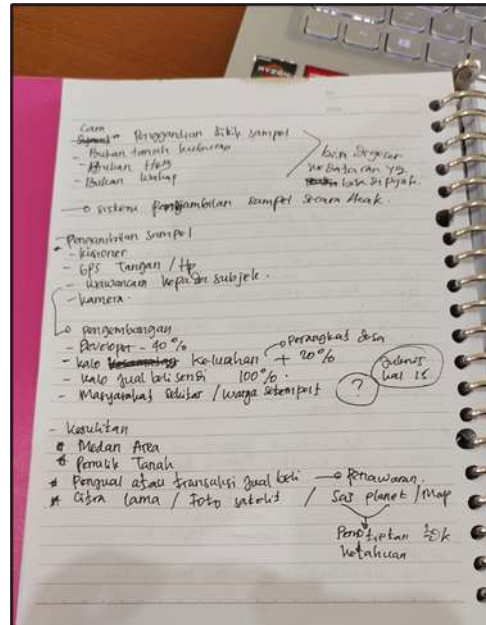 RYZEN
Cara
Penggandian titik sampel
- Bukan tanah kuburan
- Bukan HGB
- Bukan Wakap
bisa Digeser
ke Bataran yg.
bisa di pijak.
sistem pengambilan sampel secara Acak.
Pengambilan sampel
- kisioner
- GPS Tangan / Hp
- wawancara kepada subjek.
- kamera.
pengembangan
- Developer - 40 %
perangkat desa
- kalo Keluahan + 20 %
- kalo jual beli 100 %.
- Masyarakat sekitar / warga setempat
?
hal 15
- kesulitan
* Medan Area
* Pemilik Tanah
* Penjual atau transaksi jual beli → Penawaran.
* Citra lama / Foto satelit / Sas planet / Map
ketahuan